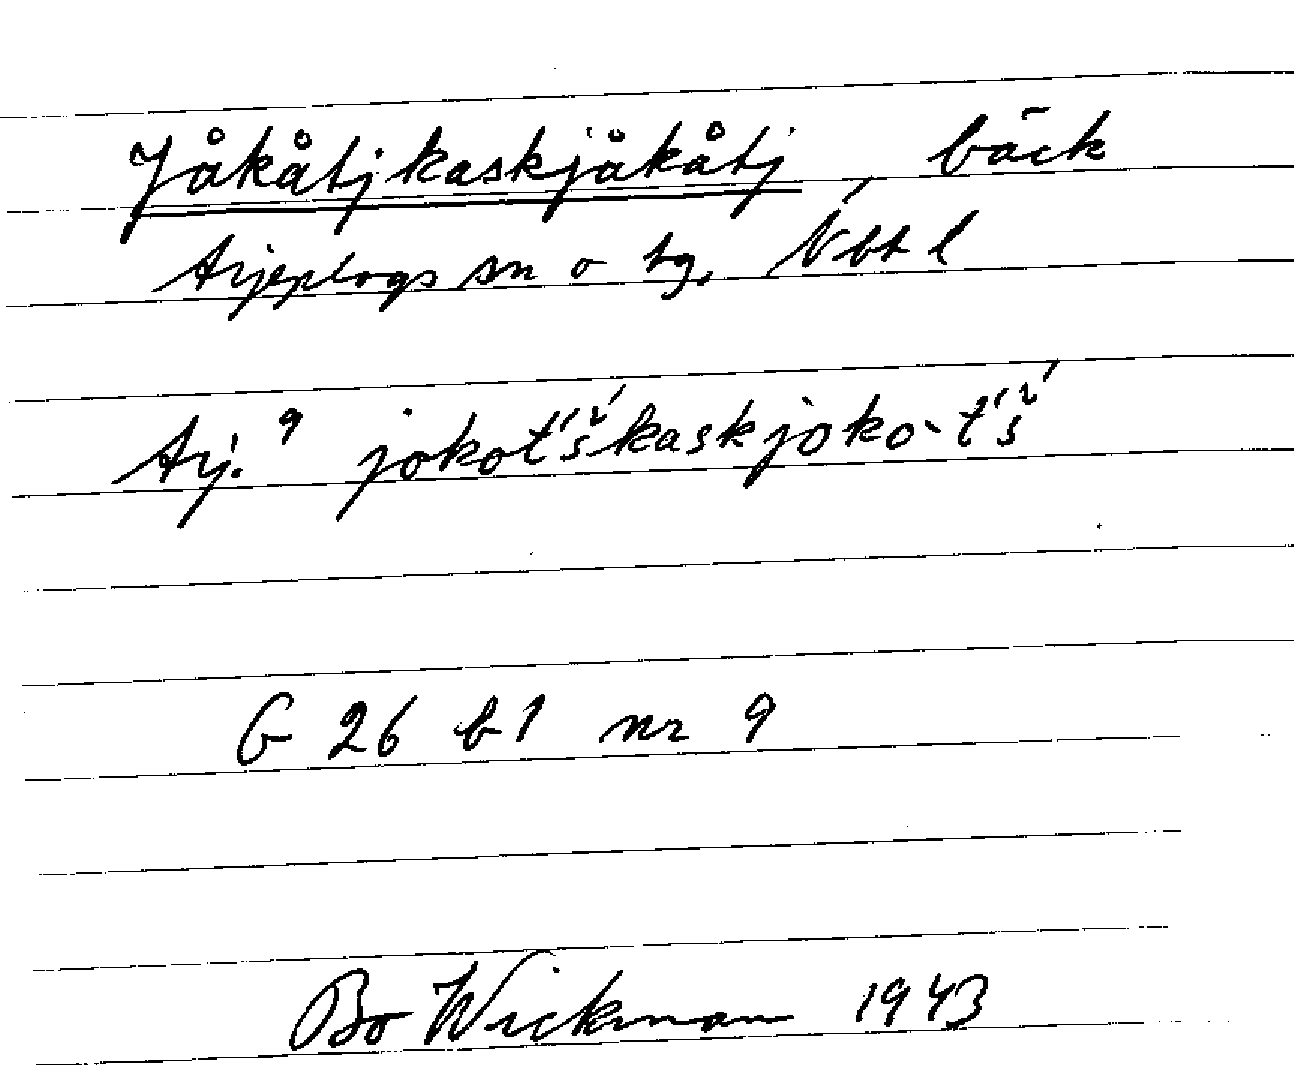 Jåkåtjkaskjåkåtj, bäck
Arjeplogs sn o tg, Nbt l
Arj. 9 jokot́š́kaskjoko·t́š́
G 26 b 1 nr 9
Bo Wickman 1943